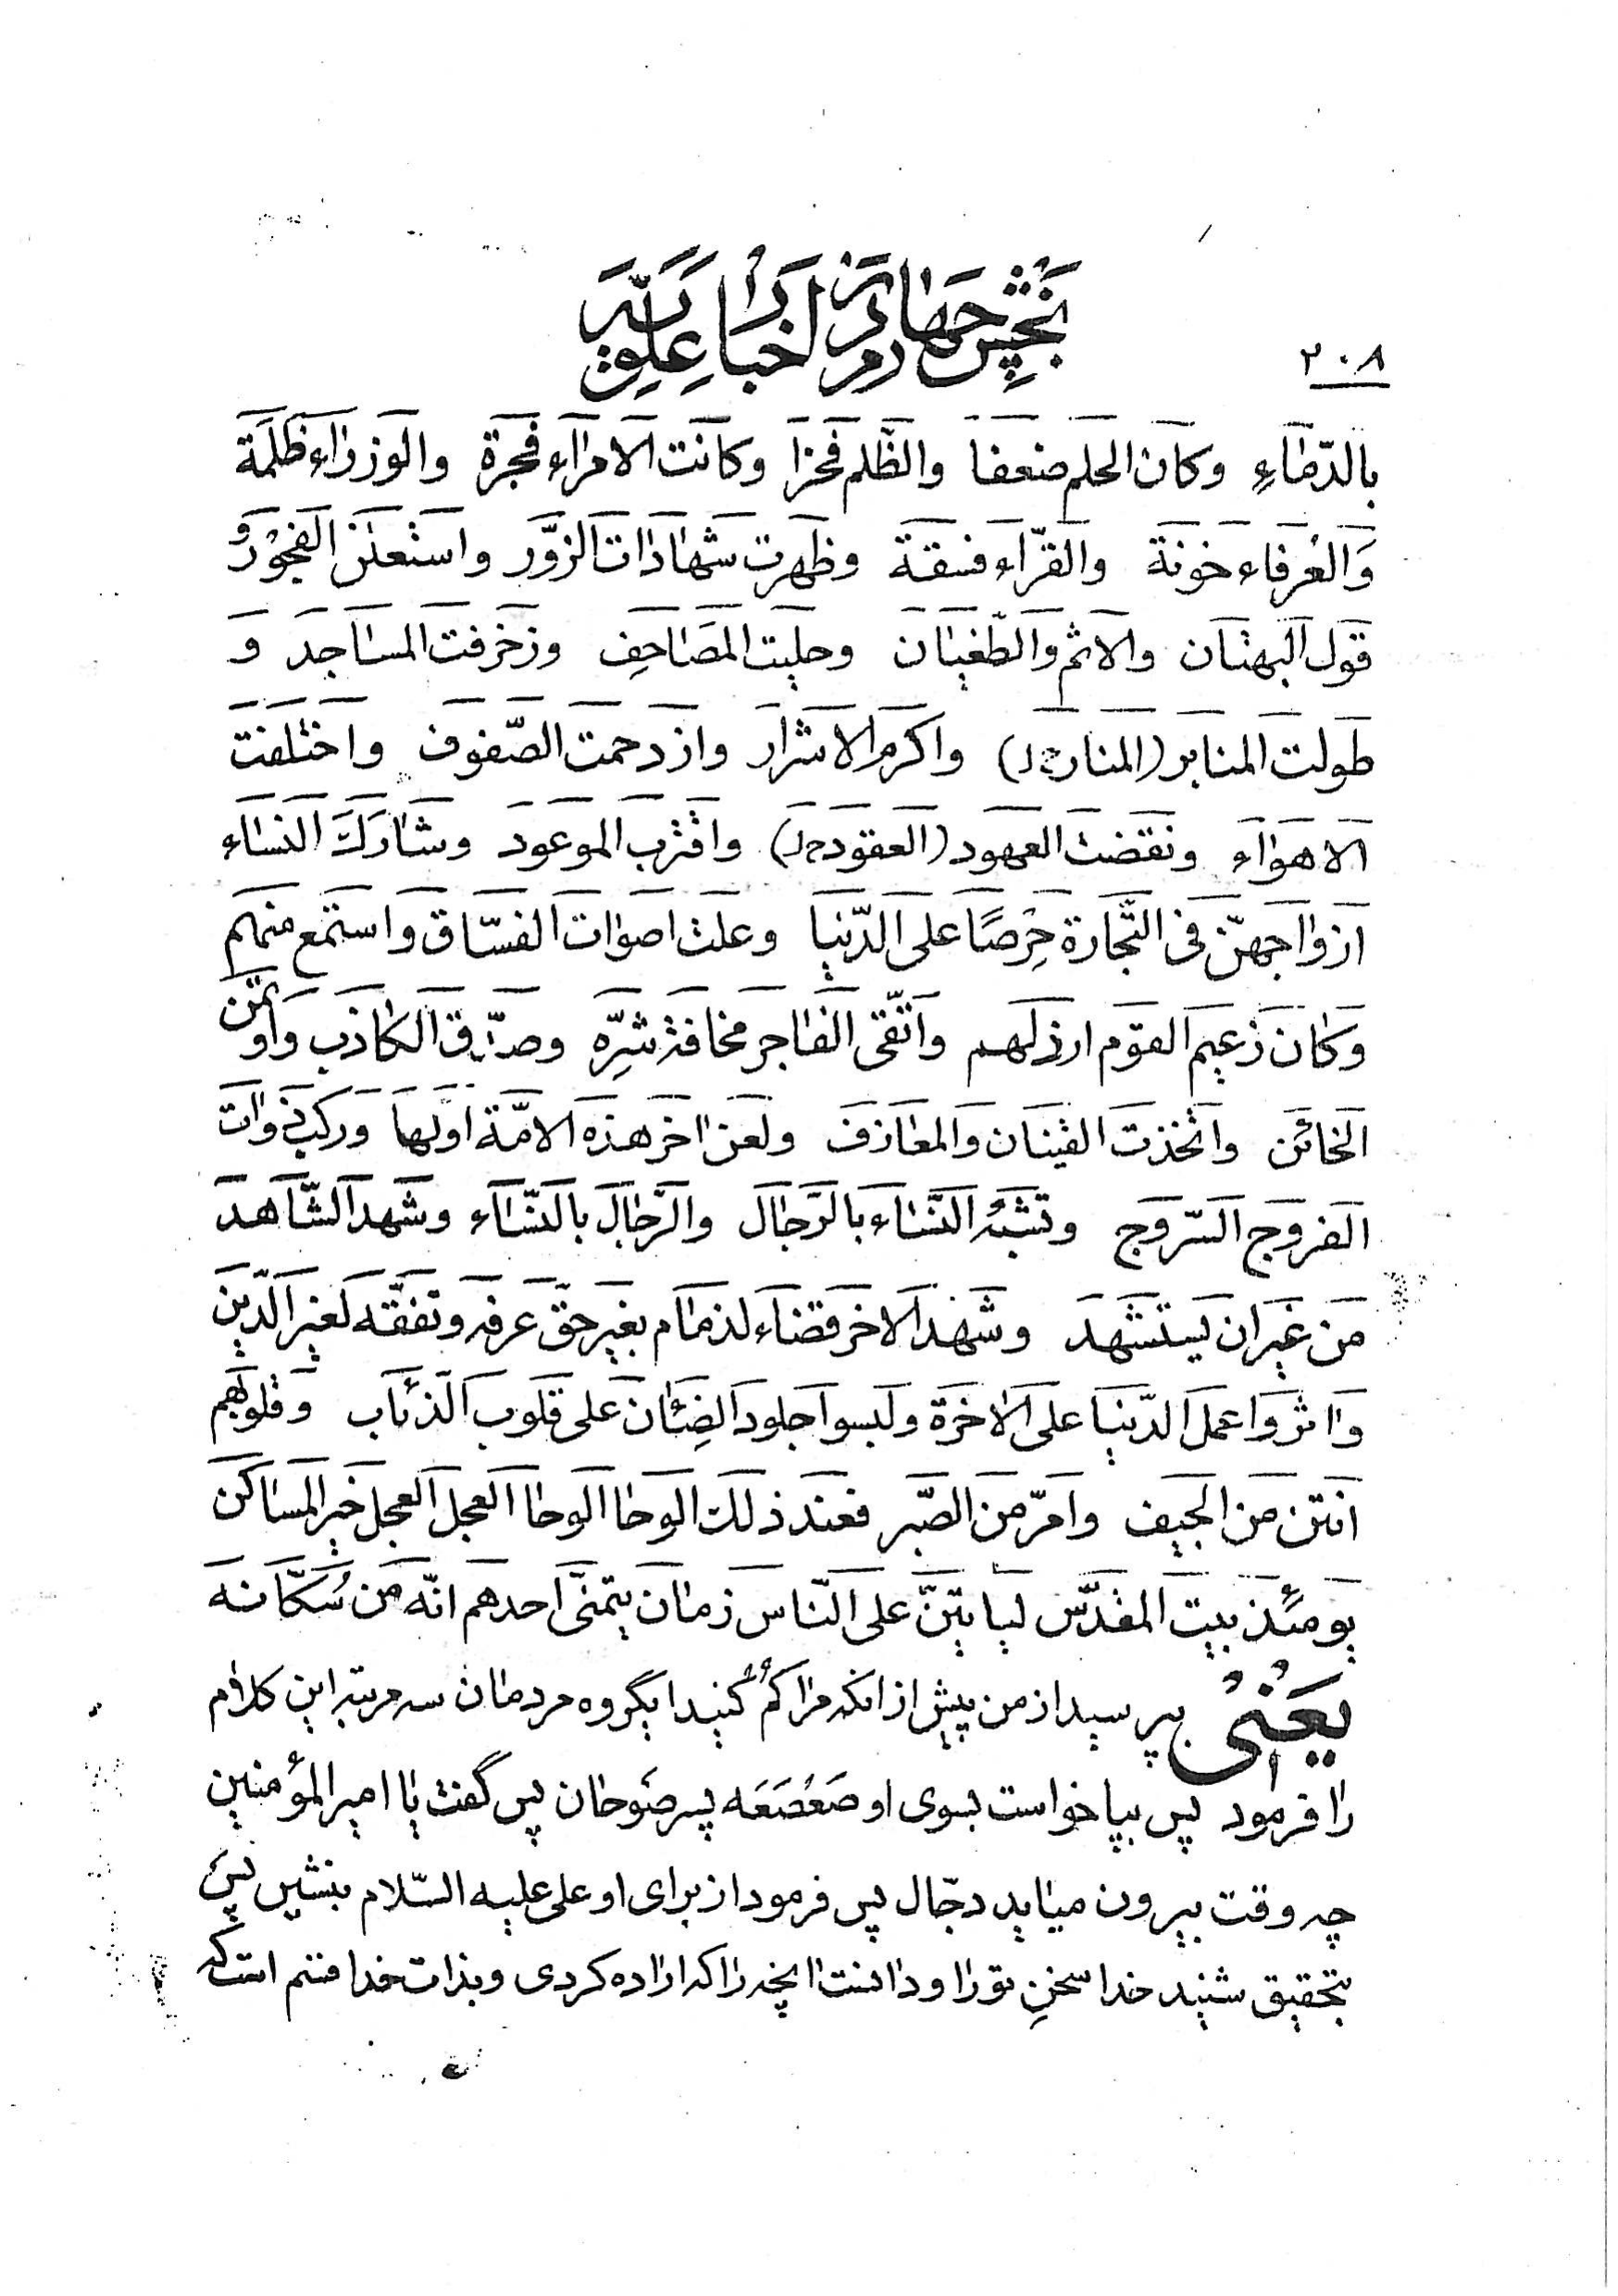 بخش چهارم در اخبار علویه
۲۰۸
بالدّماءِ وكان الحلم ضعفاً والظّلم فخراً وكانت الامراء فجرة والوزراء ظلمة
وَالعرفاء خونة والقرّاء فسقة وظهرت شهادات الزّور واستعلن الفجور وَ
قول البهتان والاثم والطّغيان وحليت المصاحِف وزخرفت المساجد وَ
طولت المنابر (المنار خ ل) واكرم الاشرار وازدحمت الصّفوف واختلفت
الاهواء ونقضت العهود (العقود خ ل) واقترب الموعود وشارك النساء
ازواجهنّ فى التّجارة حِرصًا على الدّنيا وعلت اصوات الفسّاق واستمع منهم
وَكان زعيم القوم ارذلهم واتّقى الفاجر مخافة شرِّه وصدّق الكاذب وَاؤتمن
الخائن واتّخذت القينات والمعازف ولعن اخر هذه الامّة اوّلها وَركب ذوات
الفروج السّروج وتشبّه النّساء بالرّجال والرّجال بالنّساء وشهد الشّاهد
من غير ان يستشهد وشهد الاخر قضاء لذمام بغير حقّ عرفه وتفقّه لغير الدّين
وَاثروا عمل الدّنيا على الاخرة ولبسوا جلود الضِئان على قلوب الذئاب وَقلوبهم
انتن من الجيف وامرّ من الصّبر فعند ذلك الوحا الوحا العجل العجل خير المساكن
يومئذ بيت المقدّس ليايتنّ على النّاس زمان يتمنّى احدهم انّه من سُكّانه
يَعْنى بپرسيد از من پيش از انكه مرا كُمْ كنيد ايگروه مردمان سه مرتبه اين كلام
را فرمود پس بپا خواست بسوى او صَعْصَعَه پسر صَوحان پس گفت يا امير المؤمنين
چه وقت بيرون ميايد دجّال پس فرمود از براى او على عليه السّلام بنشين پس
بتحقيق شنيد خدا سخنِ تو را و دانست انچه را كه اراده كردى و بذات خدا قسم است كه